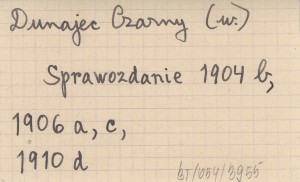 Dunajec Czarny (w.)
Sprawozdanie 1904 b,
1906 a, c,
1910 d
bt/054/3955